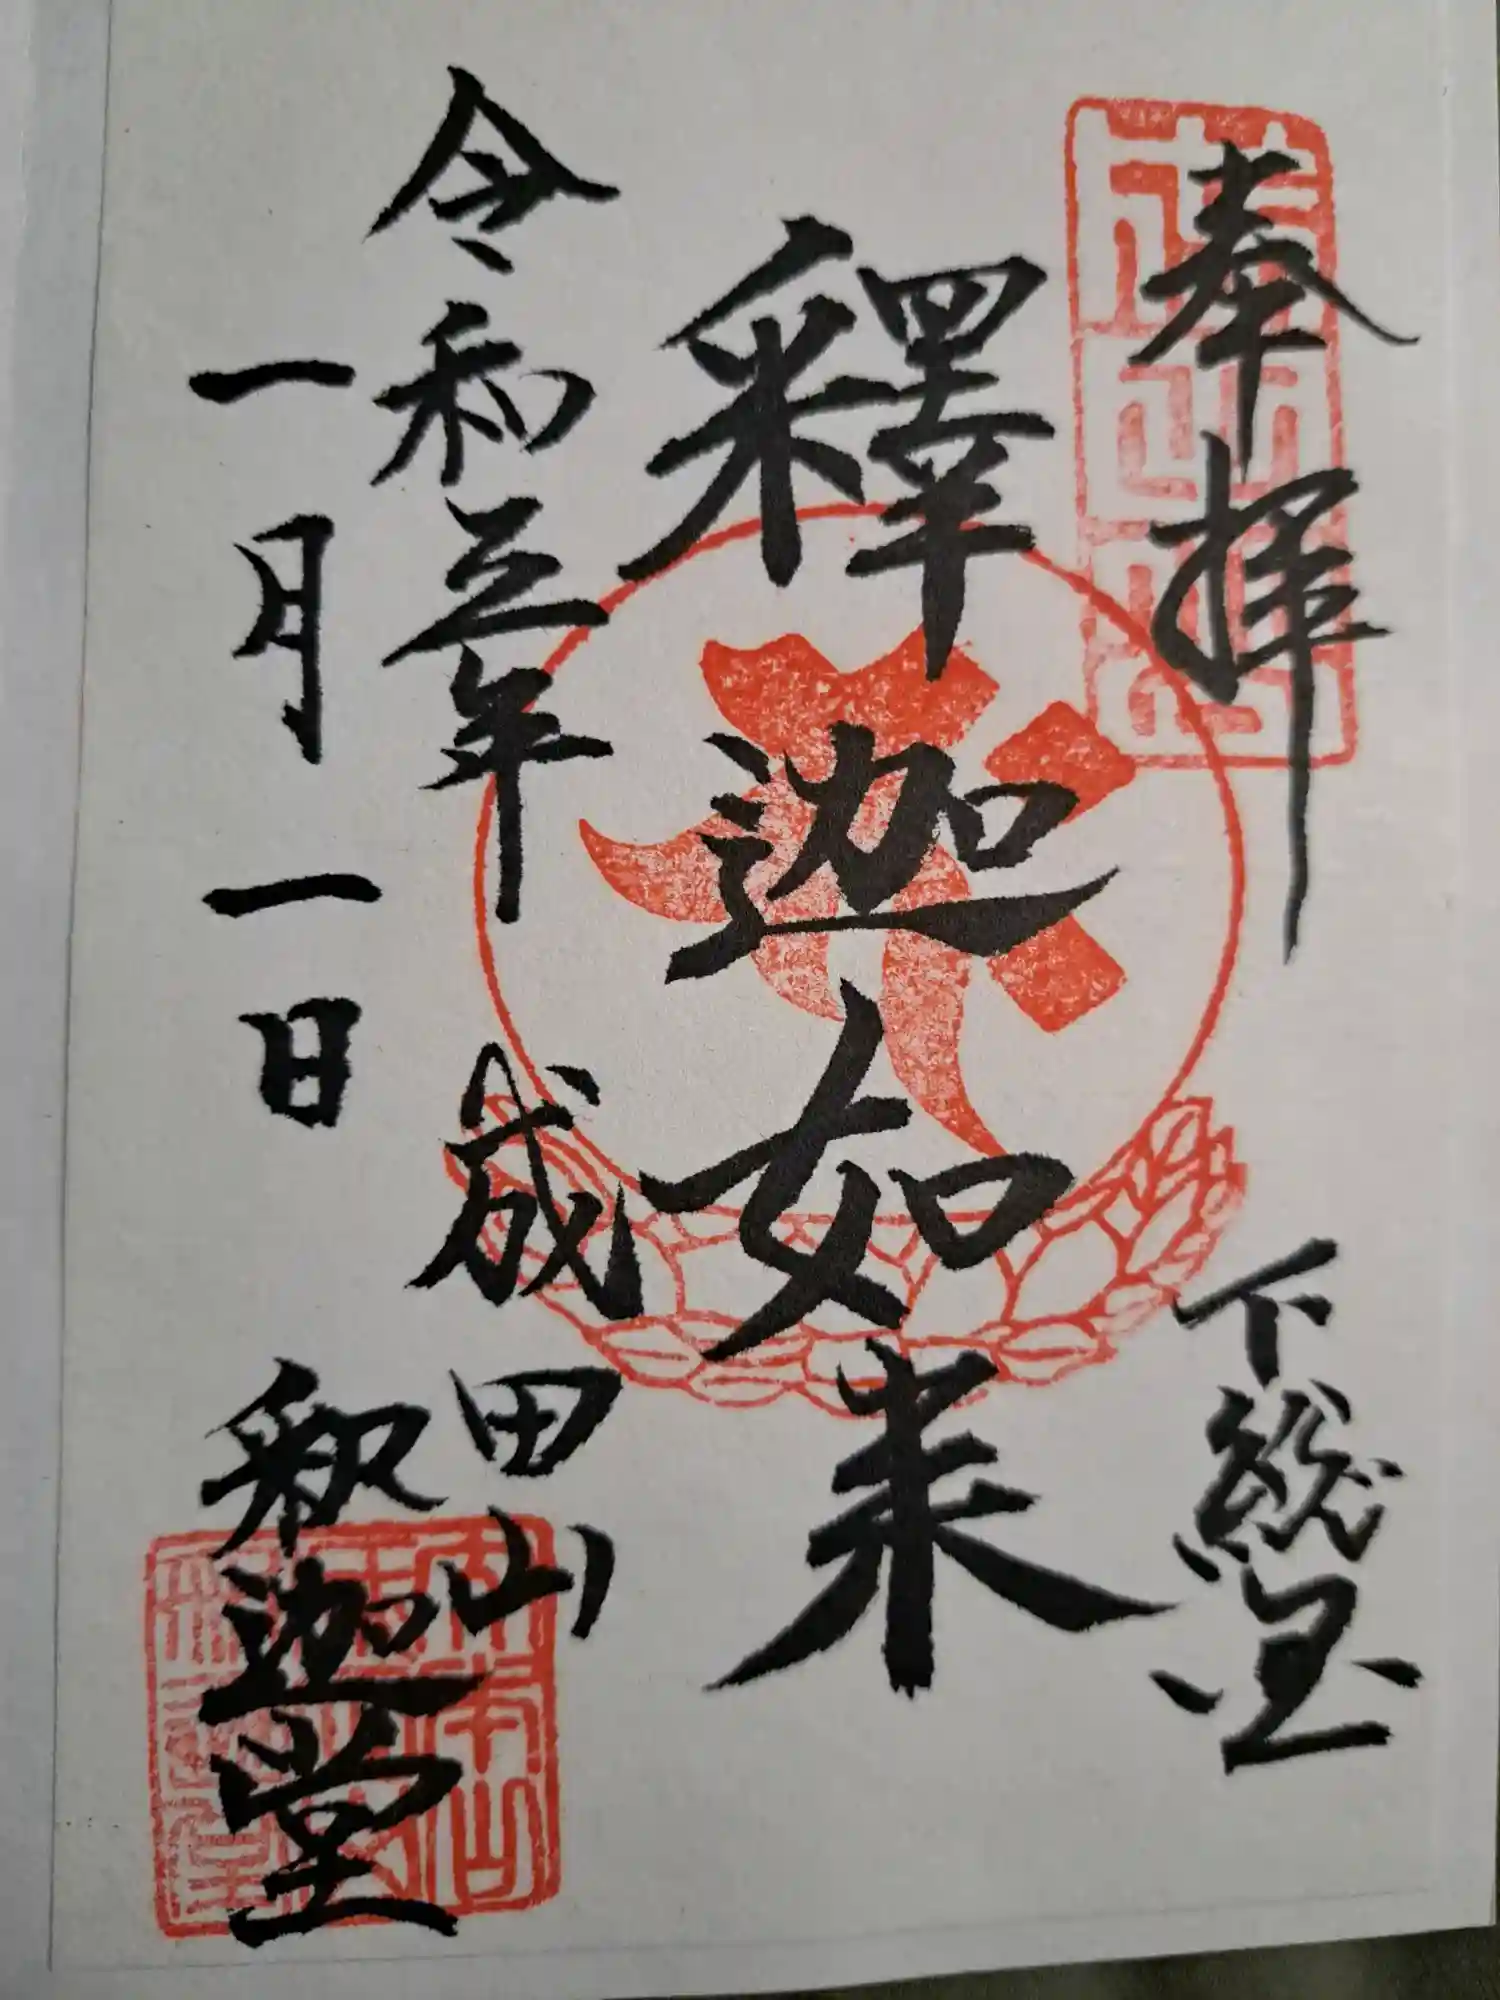 奉拝
下総国
釋迦如来
令和五年
一月一日
成田山
釈迦堂